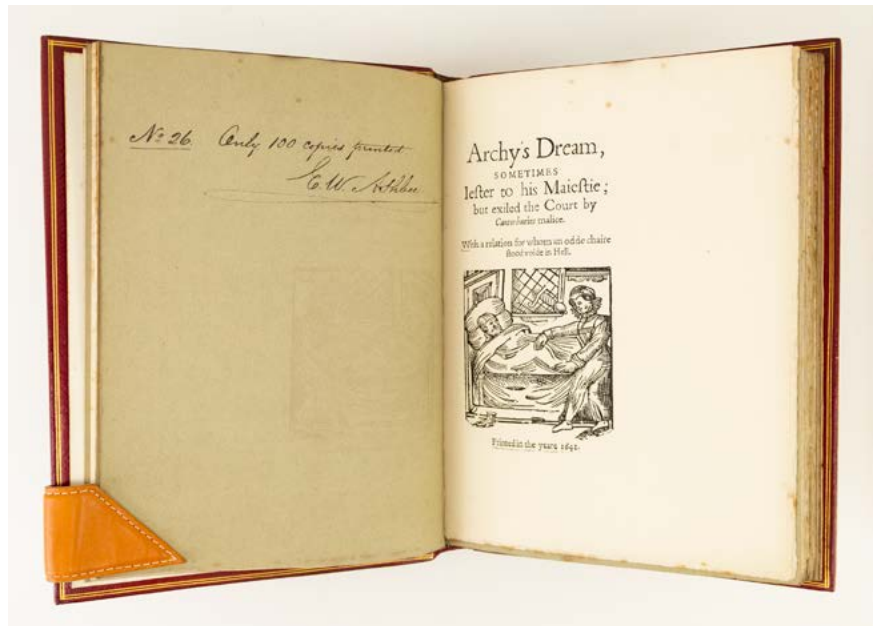 No 26. Only 100 copies printed
E. W. Ashbee
Archy's Dream,
SOMETIMES
Iester to his Maiestie;
but exiled the Court by
Canterburies malice.
With a relation for whom an odde chaire
stood voide in Hell.
Printed in the yeare 1641.